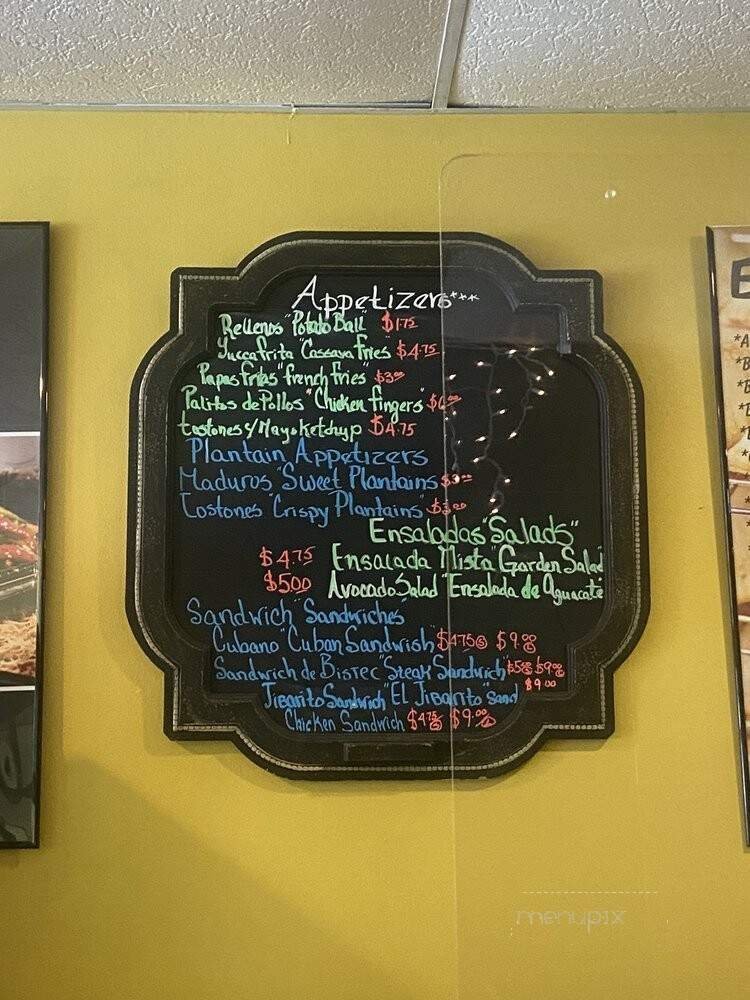 Appetizers***
Rellenos "Potato Ball" $1.75
Yucca frita "Cassava fries" $4.75
Papas fritas "french fries" $3.00
Palitos de Pollos "Chicken fingers"
tostones y/Mayoketchup $4.75
Plantain Appetizers
Maduros "Sweet Plantains" $3.00
Tostones "Crispy Plantains" $3.00
Ensaladas "Salads"
$4.75 Ensalada Mista "Garden Salad
$5.00 Avocado Salad "Ensalada de aguacate
Sandwich "Sandwiches"
Cubano "Cuban Sandwish" $4.75 $9.00
Sandwich de Bistec "Steak Sandwich" $9.00
$9.00
Jibarito Sandwich "El Jibarito" Sand
Chicken Sandwich $4.75 $9.00
E
menupix